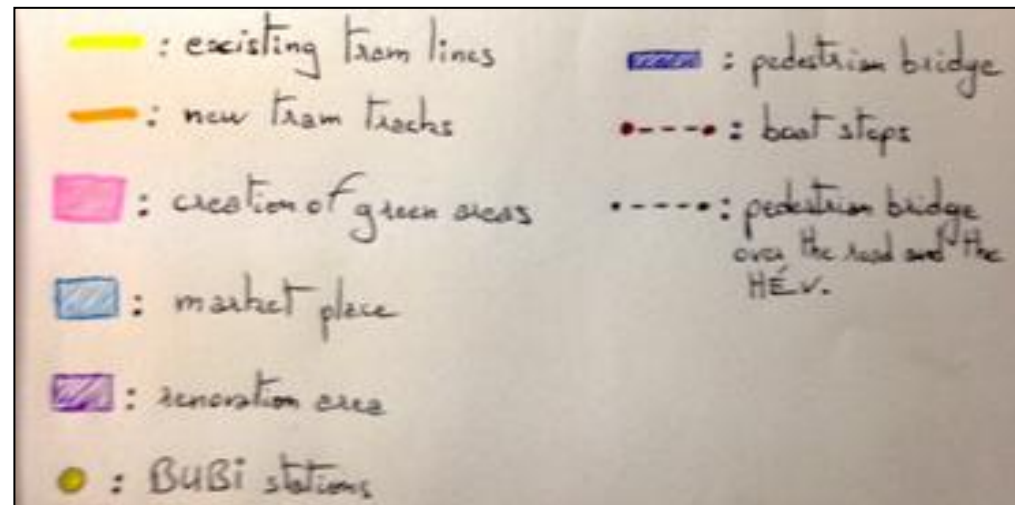 : excisting tram lines
: new tram tracks
: creation of green areas
: market place
: renovation area
: BUBi stations
: pedestrian bridge
: boat steps
: pedestrian bridge
over the road and the
HÉV.